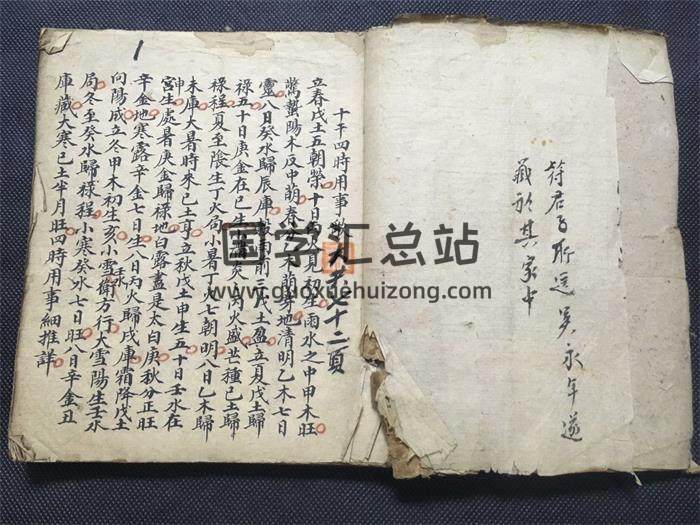 符君所選吳永年遂
藏於其家中
十干四時用事 七十二頁
立春戊土五朝榮十日丙火見寅生雨水之中甲木旺
驚蟄陽木反中萌春分乙木萌芽地清明乙木七日
靈八日癸水歸辰庫穀雨前三戊土盈立夏戊土歸
祿五十日庚金在巳生小滿炎丙火盛芒種己土歸
祿程夏至陰生丁火局小暑丁火七朝明八日乙木歸
未庫大暑時來己土耳立秋戊土申生五十日壬水在
申宮生處暑庚金歸祿地白露盡是太白庚秋分正旺
辛金地寒露辛金七日生八日丙火歸戌庫霜降戊土
向陽成立冬甲木初生亥小雪壬水衛方行大雪陽生壬水
局冬至癸水歸祿程小寒癸水七日旺八日辛金丑
庫藏大寒己土半月旺四時用事細推詳
1
国学汇总站
www.guoxuehuizong.com